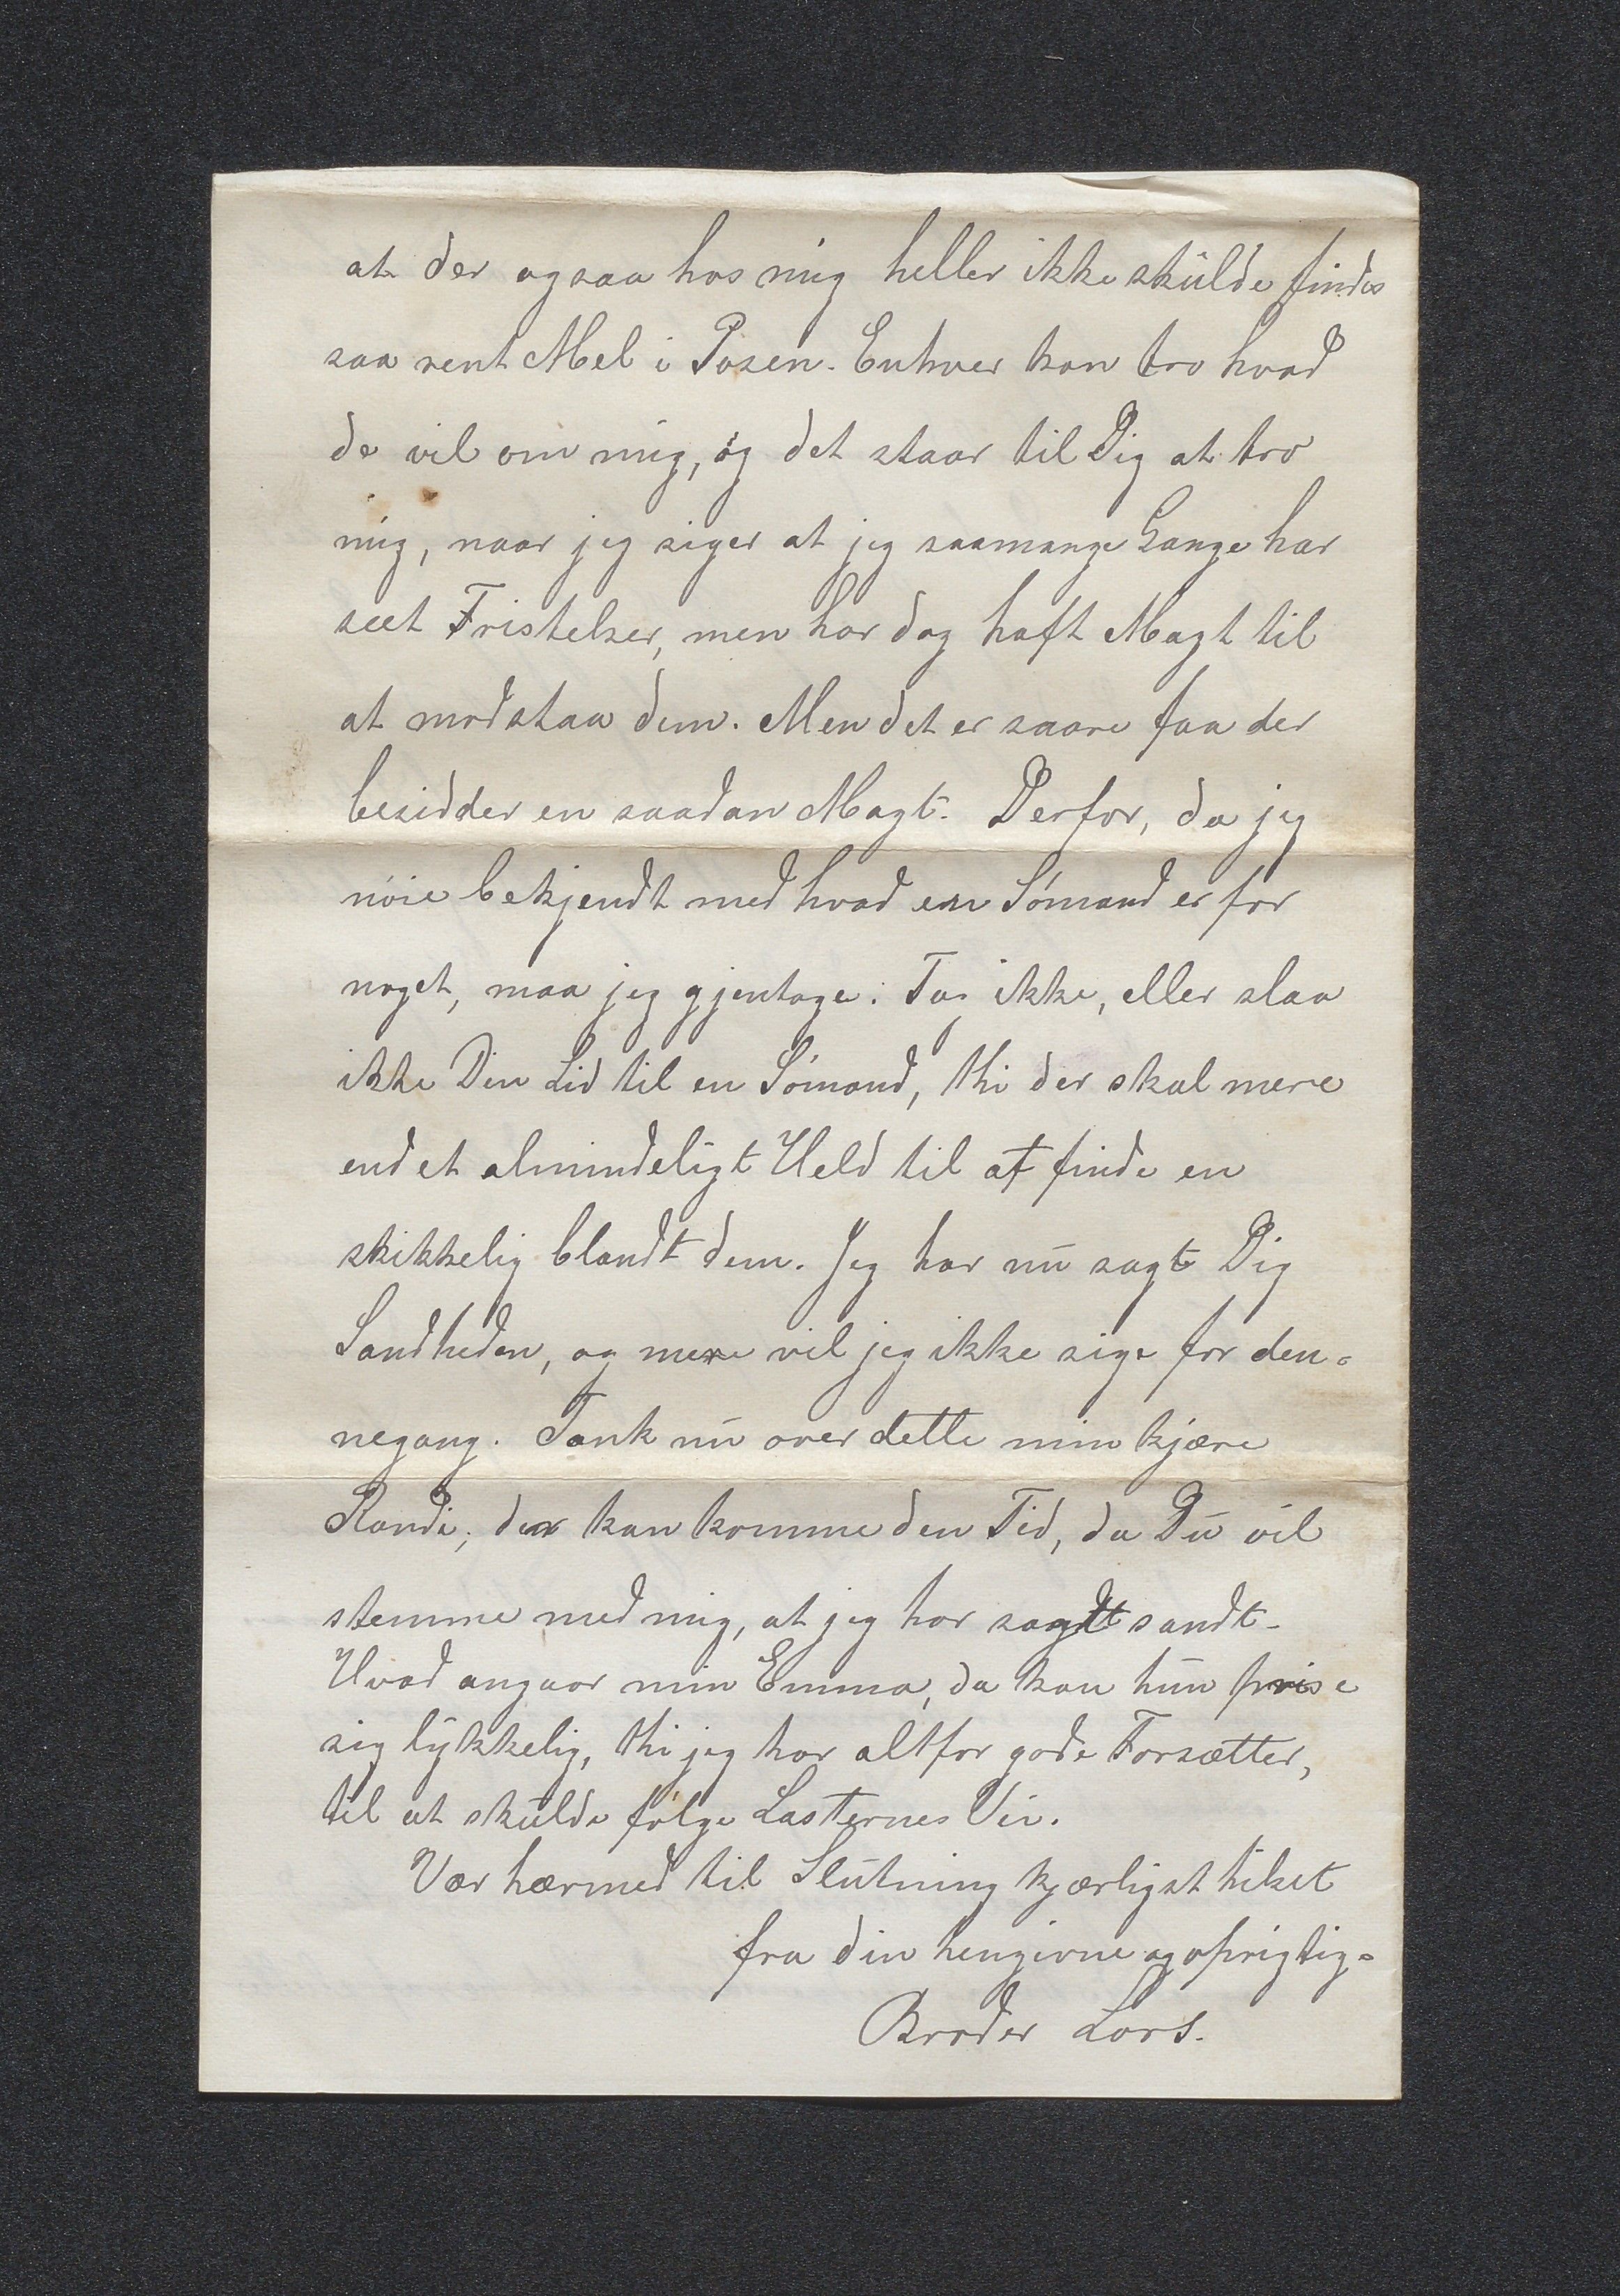 at der ogsaa hos mig heller ikke skulde findes
saa rent Mel i Posen. Enhver kan tro hvad
de vil om mig, og det staar til Dig at tro
mig, naar jeg siger at jeg saamange Gange har
seet Fristelser, men har dog haft Magt til
at modstaa dem. Men det er saare faa der
besidder en saadan Magt. Derfor, da jeg
nöie bekjendt med hvad en Sömand er for
noget, maa jeg gjentage: Tag ikke, eller slaa
ikke Din Lid til en Sömand, thi der skal mere
end et almindeligt Held til at finde en
skikkelig blandt dem. Jeg har nu sagt Dig
Sandheden, og mere vil jeg ikke sige for den-
negang. Tænk nu over dette min kjære
Randi; der kan komme den Tid, da Du vil
stemme med mig, at jeg har sagdt sandt.
Hvad angaar min Emma, da kan hun prise
sig lykkelig, thi jeg har altfor gode Forsætter,
til at skulde fölge Lasternes Vei.
Vær hærmed til Slutning kjærligst hilset
fra din hengivne og oprigtig-
Broder Lars.